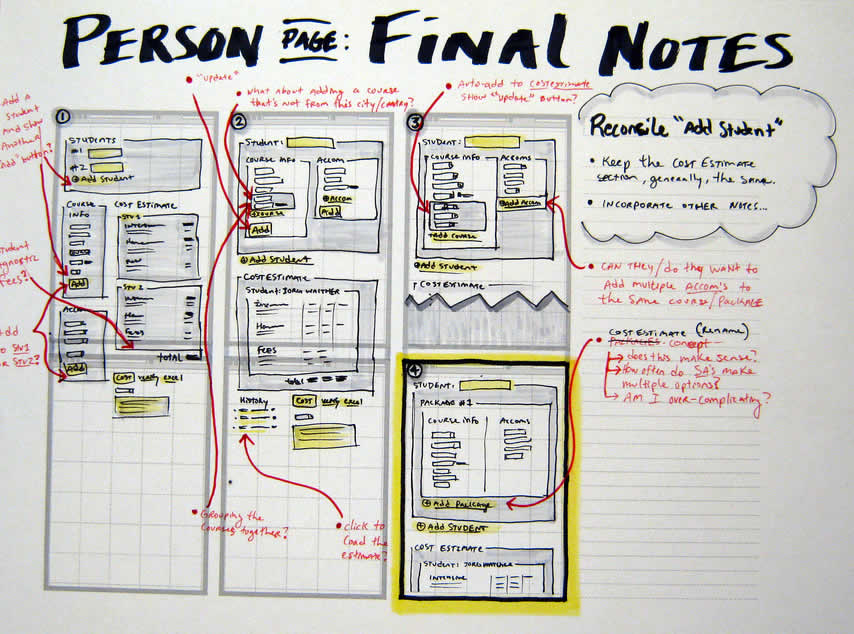 PERSON PAGE: FINAL NOTES
"UPDATE"
WHAT ABOUT ADDING A COURSE
THAT'S NOT FROM THIS CITY/COUNTRY?
AUTO-ADD TO COST ESTIMATE
SHOW "UPDATE" BUTTON?
Add A
STUDENT
AND SHOW
ANOTHER
"ADD" BUTTON?
1
STUDENTS
#1
#2
Add STUDENT
COURSE
INFO
COST ESTIMATE
STU 1
STU 2
FEES
Add
ACCOM
Add
TOTAL
COST ready excel
FEES?
TO STU1
OR STU2?
2
STUDENT:
COURSE INFO
ACCOM
+ACCOM
Add
+COURSE
Add
Add STUDENT
COST ESTIMATE
STUDENT: JORG WAITHER
FEES
TOTAL
HISTORY
COST ready excel
GROUPING THE
COURSES TOGETHER?
CLICK TO
LOAD THE
ESTIMATE?
3
STUDENT:
COURSE INFO
ACCOMS
Add ACCOM
+ADD COURSE
Add STUDENT
COST ESTIMATE
4
STUDENT:
PACKAGE #1
COURSE INFO
ACCOMS
Add PACKAGE
Add STUDENT
COST ESTIMATE
STUDENT: JORG WAITHER
INTENSIVE
Reconcile "Add Student"
• Keep the COST ESTIMATE
SECTION, GENERALLY, THE SAME.
• INCORPORATE OTHER NOTES...
CAN THEY/do they WANT TO
Add MULTIPLE ACCOM'S TO
THE SAME COURSE/PACKAGE
COST ESTIMATE (RENAME)
PACKAGES CONCEPT
DOES THIS MAKE SENSE?
HOW OFTEN DO SA'S MAKE
MULTIPLE OPTIONS?
AM I OVER-COMPLICATING?